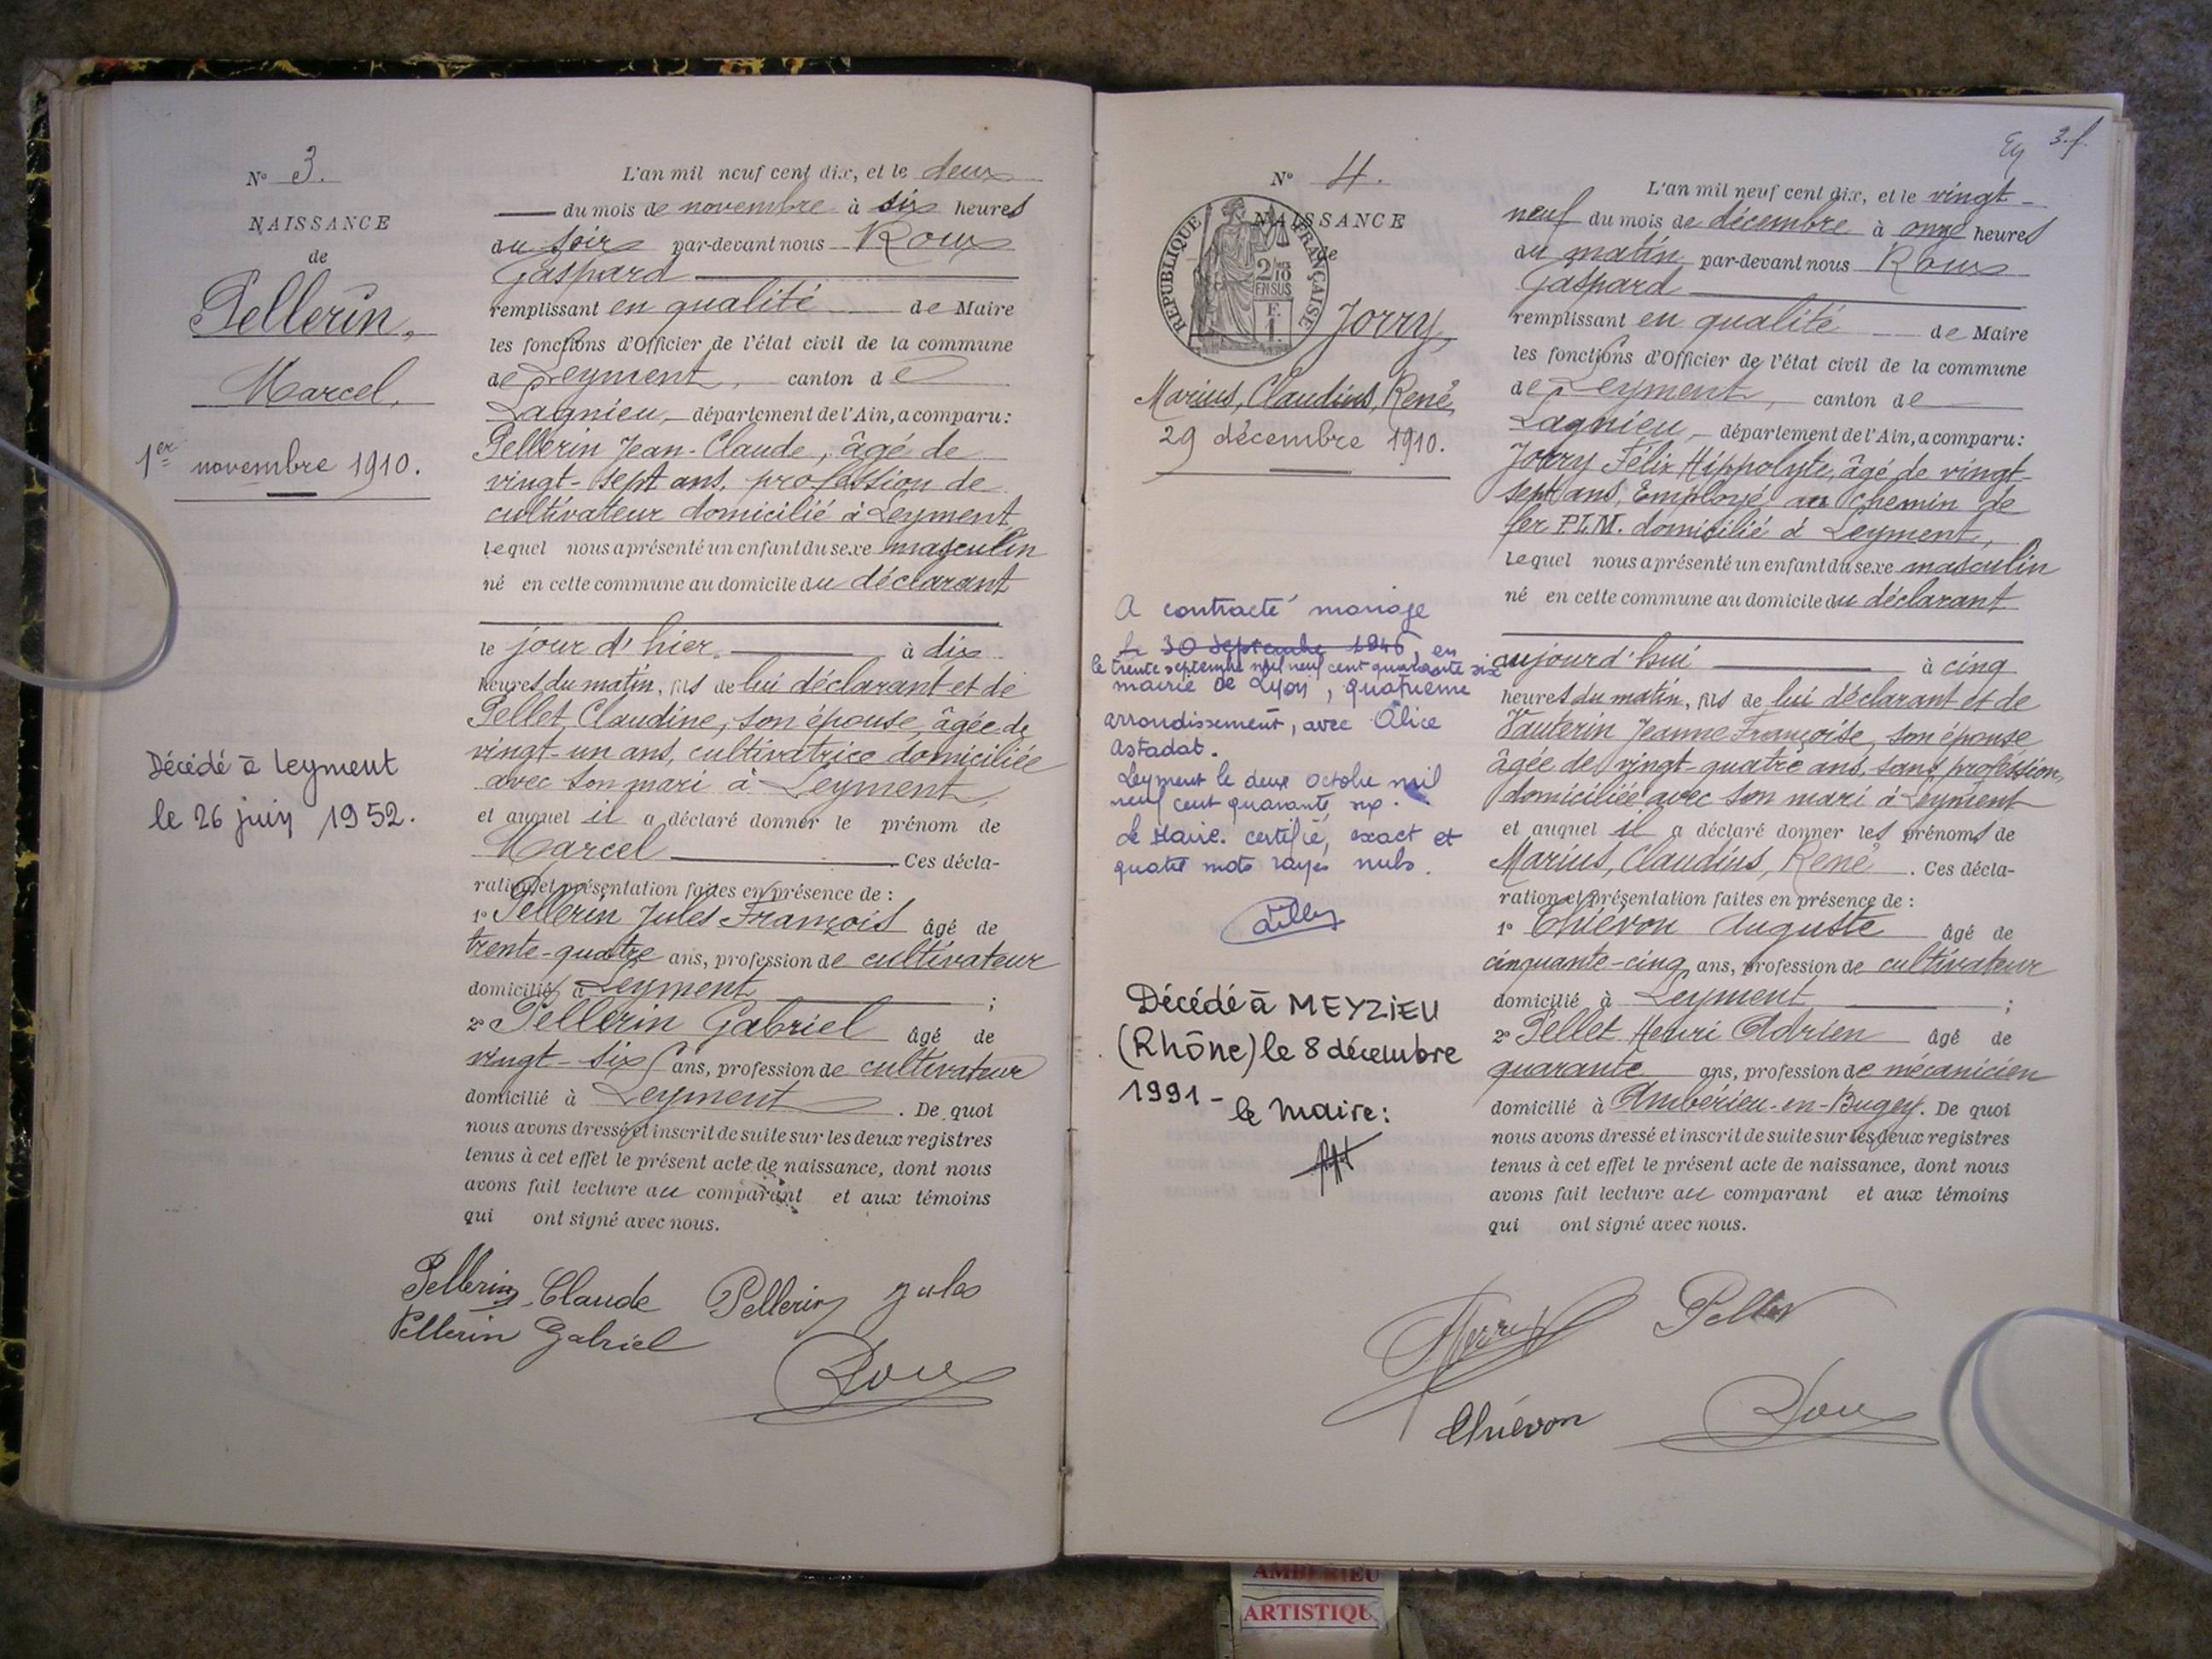 N° 3.
NAISSANCE
de
Pellerin,
Marcel.
1er novembre 1910.
Décédé à Leyment
le 26 juin 1952.
L'an mil neuf cent dix, et le deux
du mois de novembre à six heures
du soir par-devant nous Roux
Gaspard
remplissant en qualité de Maire
les fonctions d'Officier de l'état civil de la commune
de Leyment, canton de
Lagnieu, département de l'Ain, a comparu:
Pellerin Jean-Claude, âgé de
vingt-sept ans, profession de
cultivateur domicilié à Leyment
lequel nous a présenté un enfant du sexe masculin
né en cette commune au domicile du déclarant
le jour d'hier à dix
heures du matin, fils de lui déclarant et de
Pellet Claudine, son épouse, âgée de
vingt-un ans, cultivatrice domiciliée
avec son mari à Leyment,
et auquel il a déclaré donner le prénom de
Marcel Ces décla-
ration et présentation faites en présence de :
1° Pellerin Jules François âgé de
trente-quatre ans, profession de cultivateur
domicilié à Leyment ;
2° Pellerin Gabriel âgé de
vingt-six ans, profession de cultivateur
domicilié à Leyment . De quoi
nous avons dressé et inscrit de suite sur les deux registres
tenus à cet effet le présent acte de naissance, dont nous
avons fait lecture au comparant et aux témoins
qui ont signé avec nous.
Pellerin Claude Pellerin Jules
Pellerin Gabriel
Roux
3.f.
N° 4.
NAISSANCE
de
REPUBLIQUE FRANÇAISE
2/10
EN SUS
F.
1.
Jorry,
Marius, Claudius, René,
29 décembre 1910.
A contracté mariage
le 30 Septembre 1946, en
le trente septembre mil neuf cent quarante six
mairie de Lyon, quatrième
arrondissement, avec Alice
Astadat.
Leyment le deux octobre mil
neuf cent quarante six.
Le Maire. certifié, exact et
quatre mots rayés nuls.
Décédé à MEYZIEU
(Rhône) le 8 décembre
1991 -
le Maire:
L'an mil neuf cent dix, et le vingt-
neuf du mois de décembre à onze heures
du matin par-devant nous Roux
Gaspard
remplissant en qualité de Maire
les fonctions d'Officier de l'état civil de la commune
de Leyment, canton de
Lagnieu, département de l'Ain, a comparu:
Jorry Félix Hippolyte, âgé de vingt-
sept ans, Employé au Chemin de
fer P.L.M. domicilié à Leyment,
lequel nous a présenté un enfant du sexe masculin
né en cette commune au domicile du déclarant
aujourd'hui à cinq
heures du matin, fils de lui déclarant et de
Vauterin Jeanne Françoise, son épouse
âgée de vingt-quatre ans, sans profession,
domiciliée avec son mari à Leyment
et auquel il a déclaré donner les prénoms de
Marius, Claudius, René . Ces décla-
ration et présentation faites en présence de :
1° Chiévon Auguste âgé de
cinquante-cinq ans, profession de cultivateur
domicilié à Leyment ;
2° Pellet Henri Adrien âgé de
quarante ans, profession de mécanicien
domicilié à Ambérieu-en-Bugey. De quoi
nous avons dressé et inscrit de suite sur les deux registres
tenus à cet effet le présent acte de naissance, dont nous
avons fait lecture au comparant et aux témoins
qui ont signé avec nous.
Pellet
Chiévon
Roux
AMBERIEU
ARTISTIQU